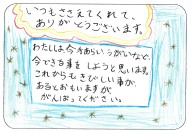 いつもささえてくれて、
ありがとうございます。
わたしは、今手あらい、うがいなど、
今できる事をしようと思います。
これからもきびしい事が
あるとおもいますが
がんばってください。